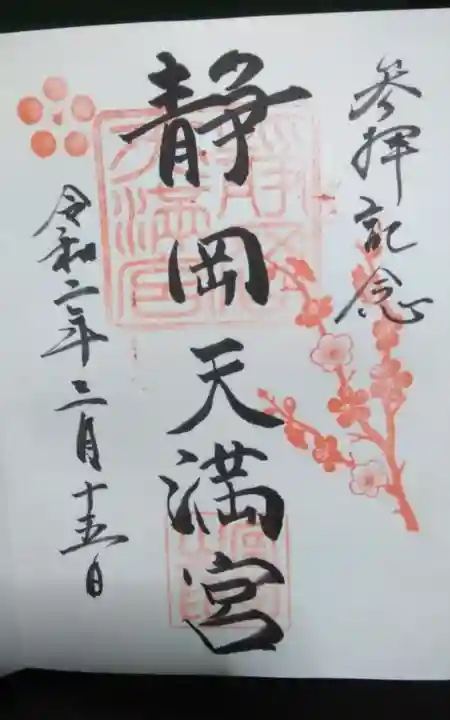 参拝記念
静岡天満宮
令和二年二月十五日